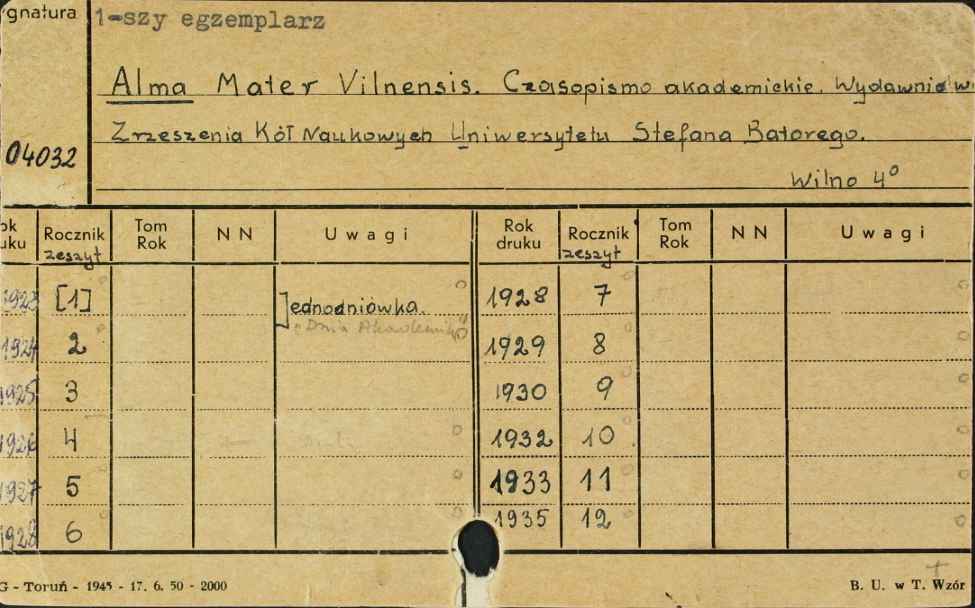 gnatura 1-szy egzemplarz
Alma Mater Vilnensis. Czasopismo akademickie. Wydawnictw
Zrzeszenia Kół Naukowych Uniwersytetu Stefana Batorego.
04032
Wilno 4°
ok uku Rocznik zeszyt Tom Rok NN Uwagi Rok druku Rocznik zeszyt Tom Rok NN Uwagi
1923 [1] Jednodniówka. 1928 7
"Dnia Akademika"
1924 2 1929 8
1925 3 1930 9
1926 4 1932 10
1927 5 1933 11
1928 6 1935 12
G - Toruń - 1945 - 17. 6. 50 - 2000 B. U. w T. Wzór